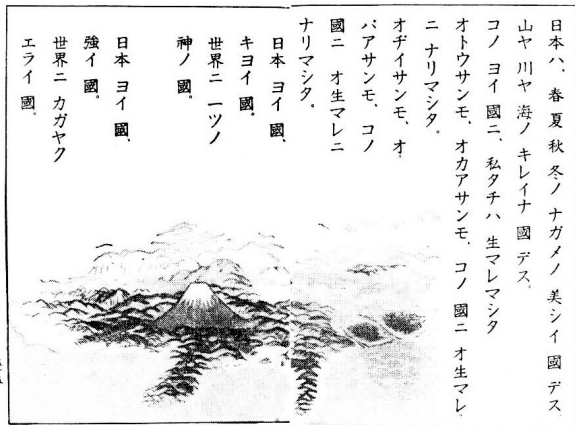 日本ハ、春夏秋冬ノ ナガメノ 美シイ 國デス
山ヤ 川ヤ 海ノ キレイナ 國デス、
コノ ヨイ 國ニ、私タチハ 生マレマシタ
オトウサンモ、オカアサンモ、コノ 國ニ オ生マレ
ニ ナリマシタ。
オヂイサンモ、オ
バアサンモ、コノ
國ニ オ生マレニ
ナリマシタ。
日本 ヨイ 國、
キヨイ 國。
世界ニ 一ツノ
神ノ 國。
日本 ヨイ 國、
強イ 國。
世界ニ カガヤク
エライ 國。